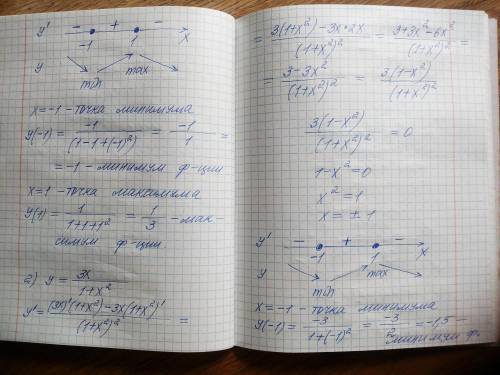 y' − + −
-1 1 x
y min max
x=-1 -точка минимума
y(-1) = -1/(1-1+(-1)²) = -1/1 =
= -1 - минимум ф-ции
x=1 -точка максимума
y(1) = 1/(1+1+1²) = 1/3 -мак-
симум ф-ции.
2) y = 3x/(1+x²)
y' = ((3x)'(1+x²)-3x(1+x²)')/(1+x²)² =
= (3(1+x²)-3x*2x)/(1+x²)² = (3+3x²-6x²)/(1+x²)² =
= (3-3x²)/(1+x²)² = 3(1-x²)/(1+x²)²
3(1-x²)/(1+x²)² = 0
1-x²=0
x²=1
x=±1
y' − + −
-1 1 x
y min max
x=-1 - точка минимума
y(-1) = -3/(1+(-1)²) = -3/2 = -1,5 -
минимум ф.